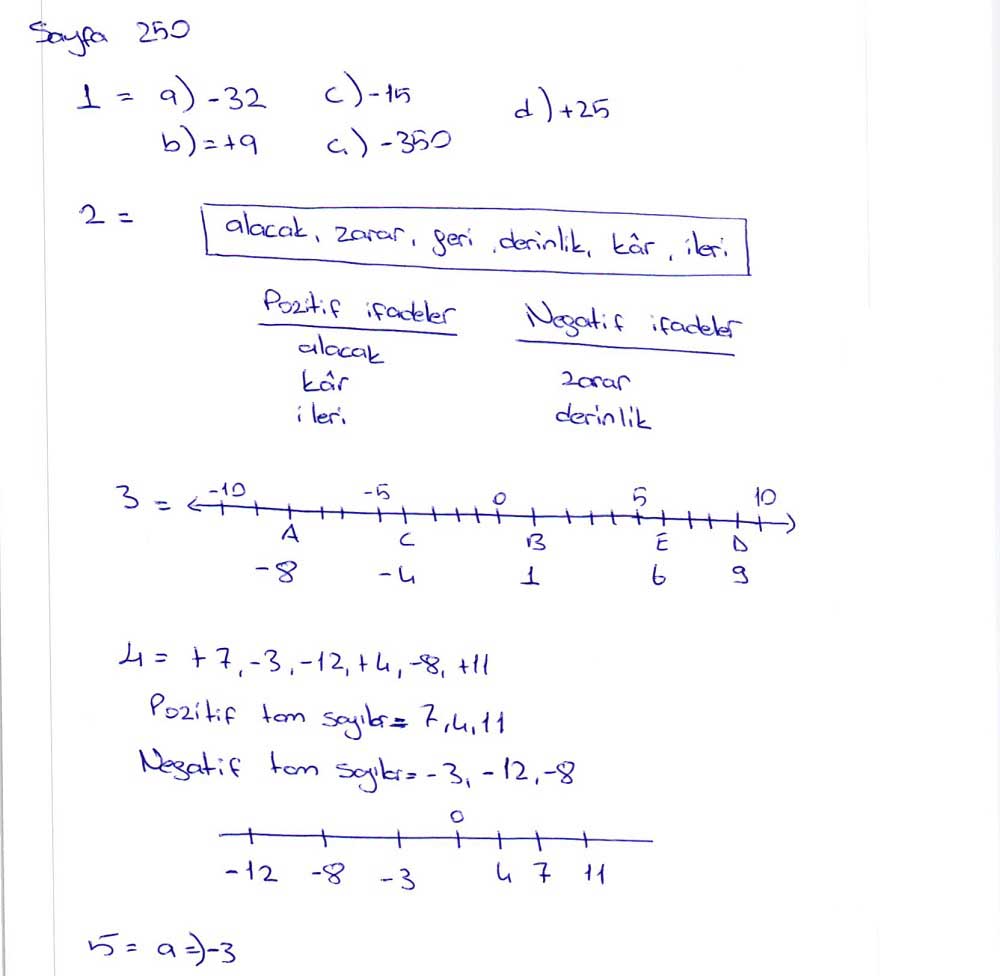 Sayfa 250
1 = a) -32 c) -15 d) +25
b) = +9 ç) -350
2 =
alacak, zarar, geri, derinlik, kâr, ileri
Pozitif ifadeler Negatif ifadeler
alacak
kâr zarar
ileri derinlik
3 = -10 -5 0 5 10
A C B E D
-8 -4 1 6 9
4 = +7, -3, -12, +4, -8, +11
Pozitif tam sayılar = 7, 4, 11
Negatif tam sayılar = -3, -12, -8
0
-12 -8 -3 4 7 11
5 = a => -3